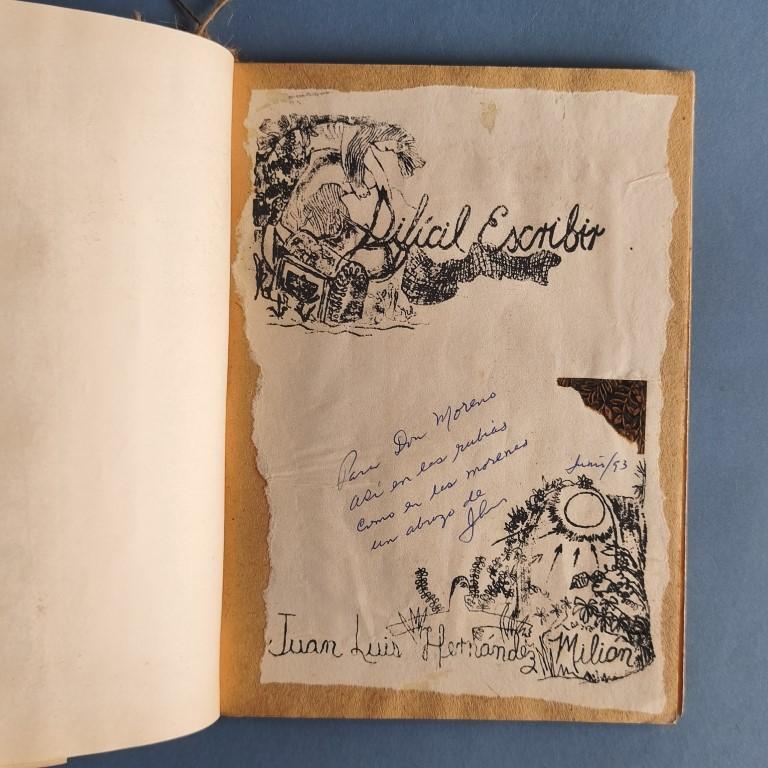 Difícil Escribir
Para Don Moreno
así en las rubias
como en las morenas
un abrazo de
Junio/93
Juan Luis Hernández Milian